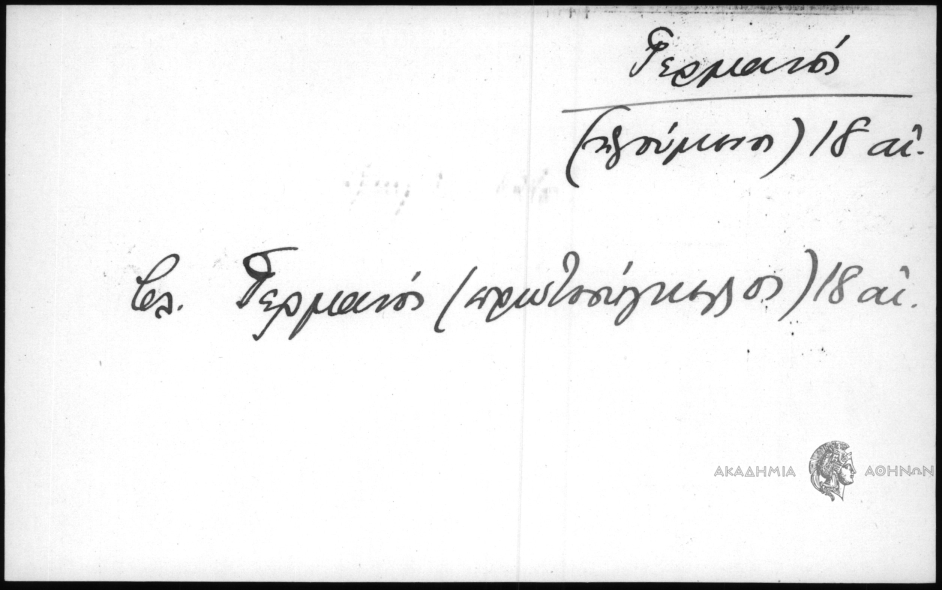 Γερμανός
(ηγούμενος) 18 αἰ.
βλ. Γερμανός (πρωτοσύγκελλος) 18 αἰ.
ΑΚΑΔΗΜΙΑ ΑΘΗΝΩΝ